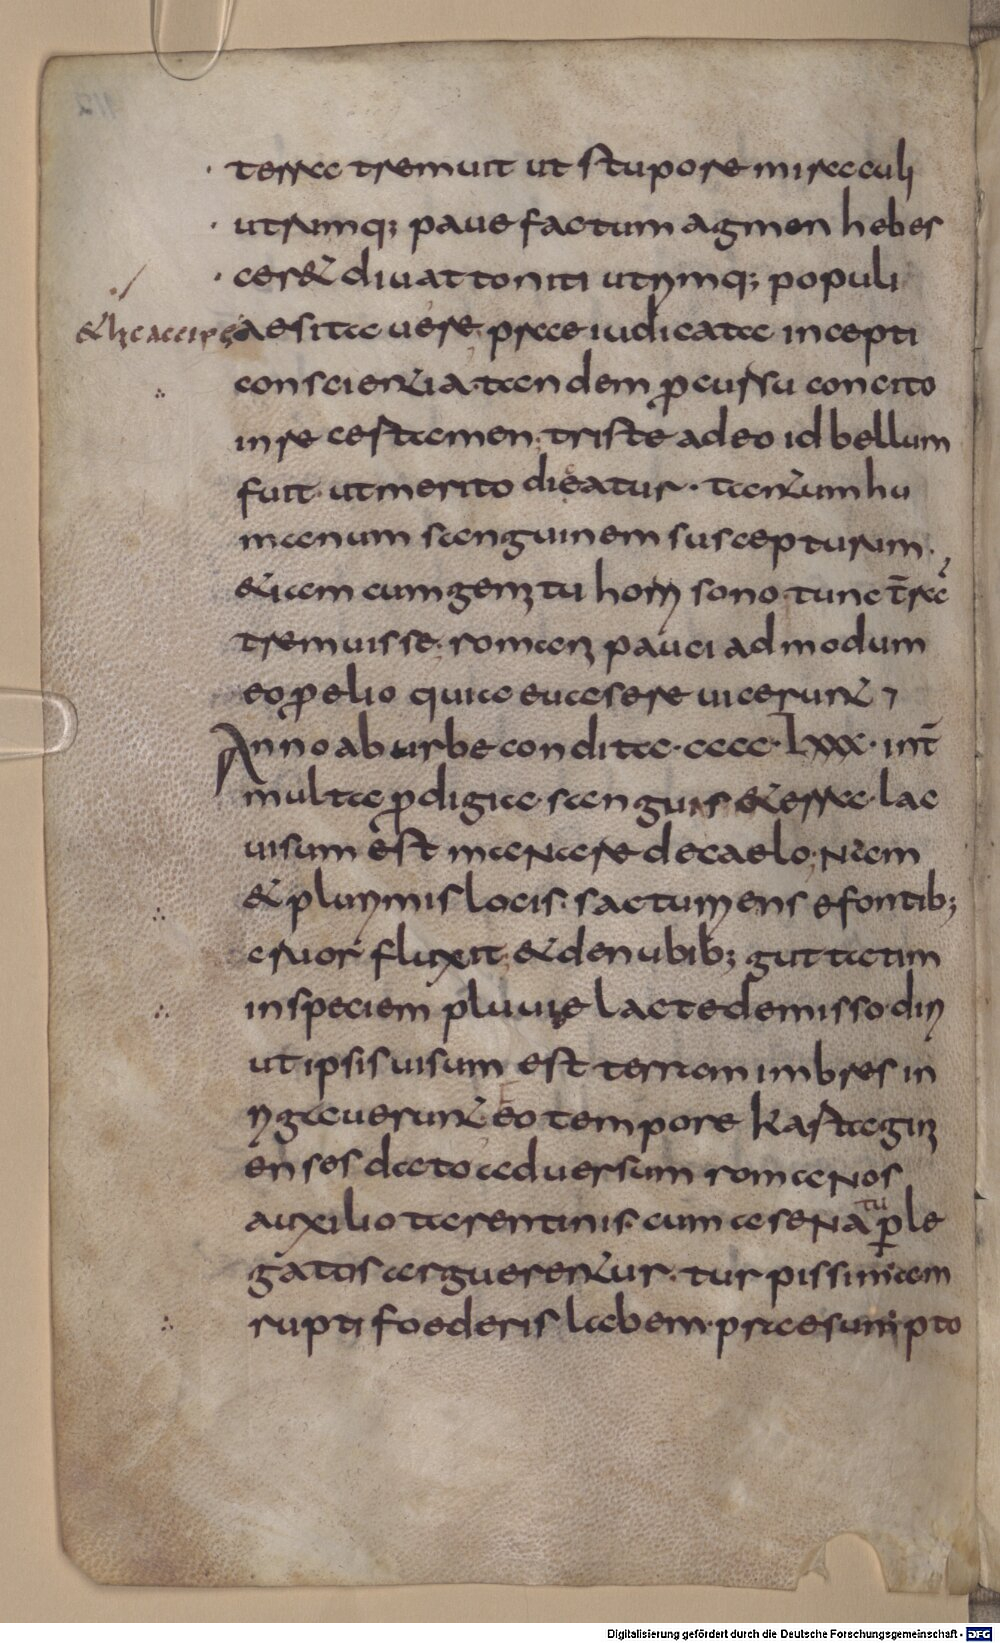 terra tremuit ut stupore miraculi
utrumq; pauefactum agmen hebes
ceret diu attoniti utrimq; populi
& hęc accipe
haesitauere praeiudicata incepti
conscientia tandem ꝓcursu concito
inre est tamen. triste adeo id bellum
fuit ut merito dicatur. tantum hu
manum sanguinem suscepturam.
etiam cum gemitu horri sono tunc t̄rā
tremuisse. romani pauci admodum
eo ꝓelio qui a euasere uicerunt
Anno ab urbe condita. cccc. lxxx. int̄
multa ꝓdigia. sanguis & erra. lac
uisum est manare de caelo. Nam
& plurimis locis. sacturiens e fontib;
cruor fluxit. & de nubib; guttatim
in speciem pluuie lacte demisso. diri
ut ipsis uisum est terram imbres in
rigauerunt eo tempore kartagin
enses dato aduersum romanos
auxilio tarentinis. cum a senatu ꝑ le
gatos arguerentur. turpissimam
rupti foederis labem. praesumpto
Digitalisierung gefördert durch die Deutsche Forschungsgemeinschaft - DFG